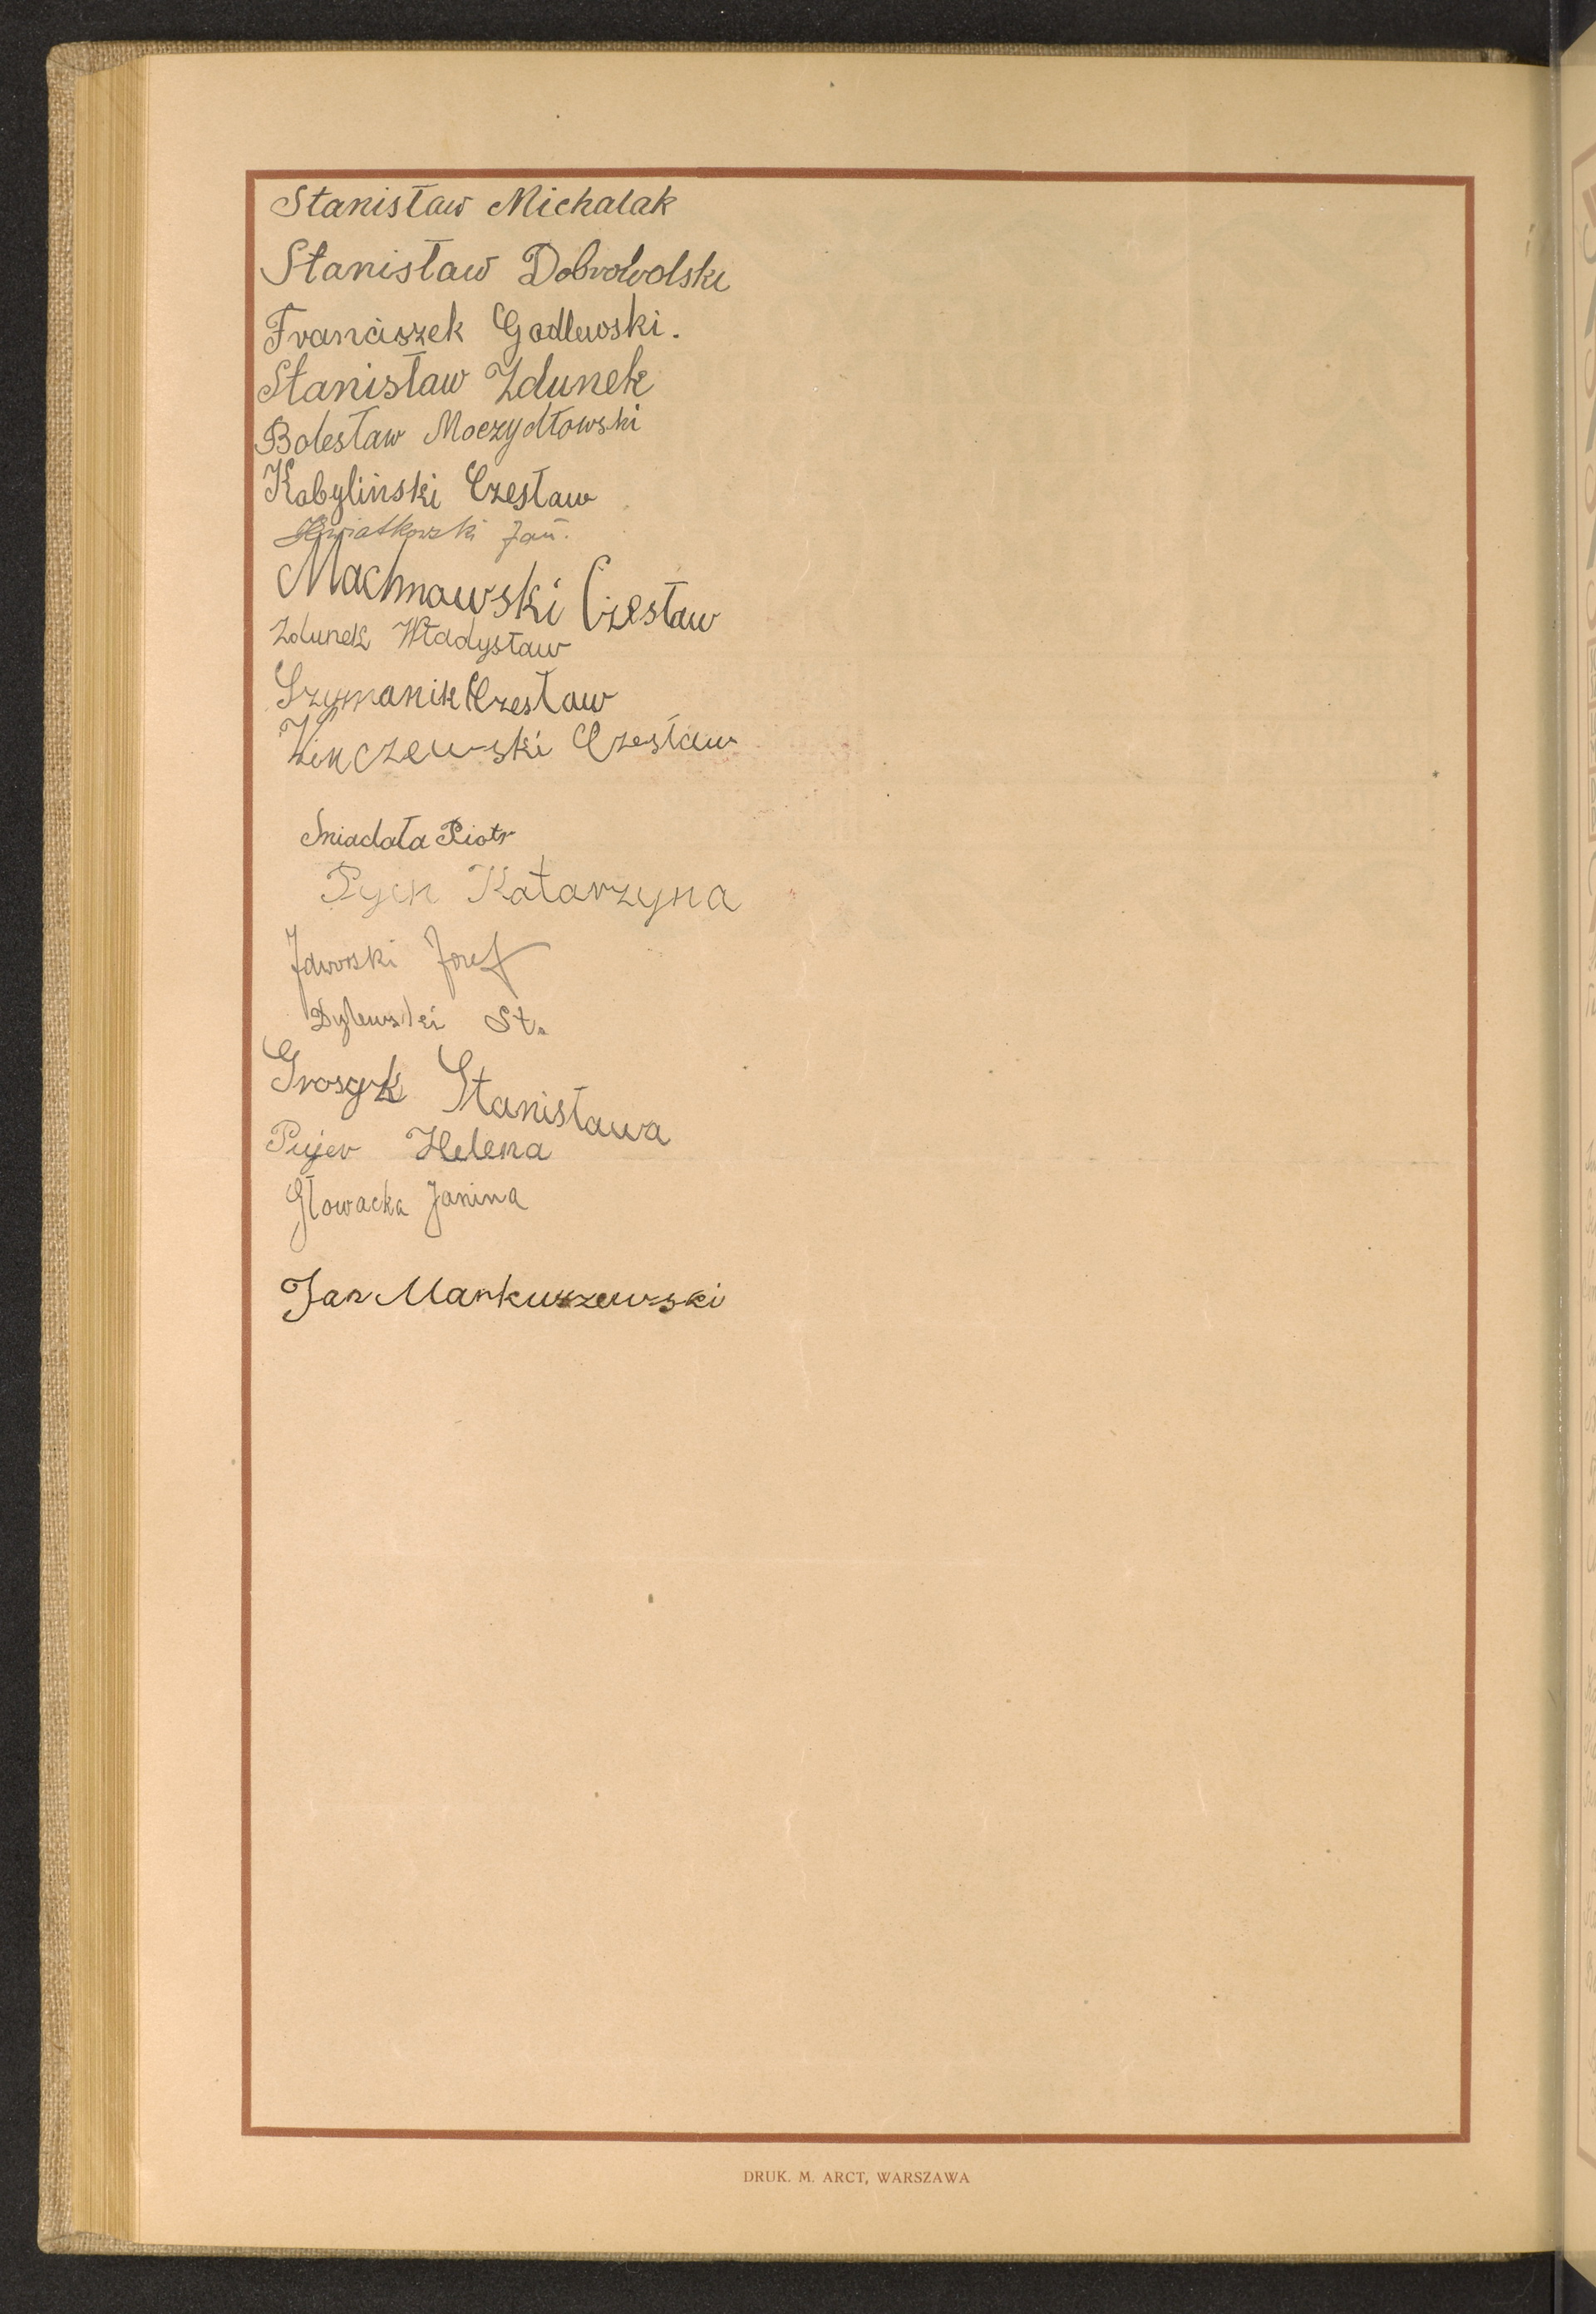 Stanisław Michalak
Stanisław Dobrowolski
Franciszek Godlewski.
Stanisław Zdunek
Bolesław Moczydłowski
Kobyliński Czesław
Kwiatkowski Jan.
Machnowski Czesław
Zdunek Władysław
Szymanik Czesław
Winczewski Czesław
Śniadała Piotr
Pych Katarzyna
Jaworski Józef
Dylewski St.
Grosyk Stanisława
Helena
Głowacka Janina
Jan Markuszewski
DRUK. M. ARCT, WARSZAWA